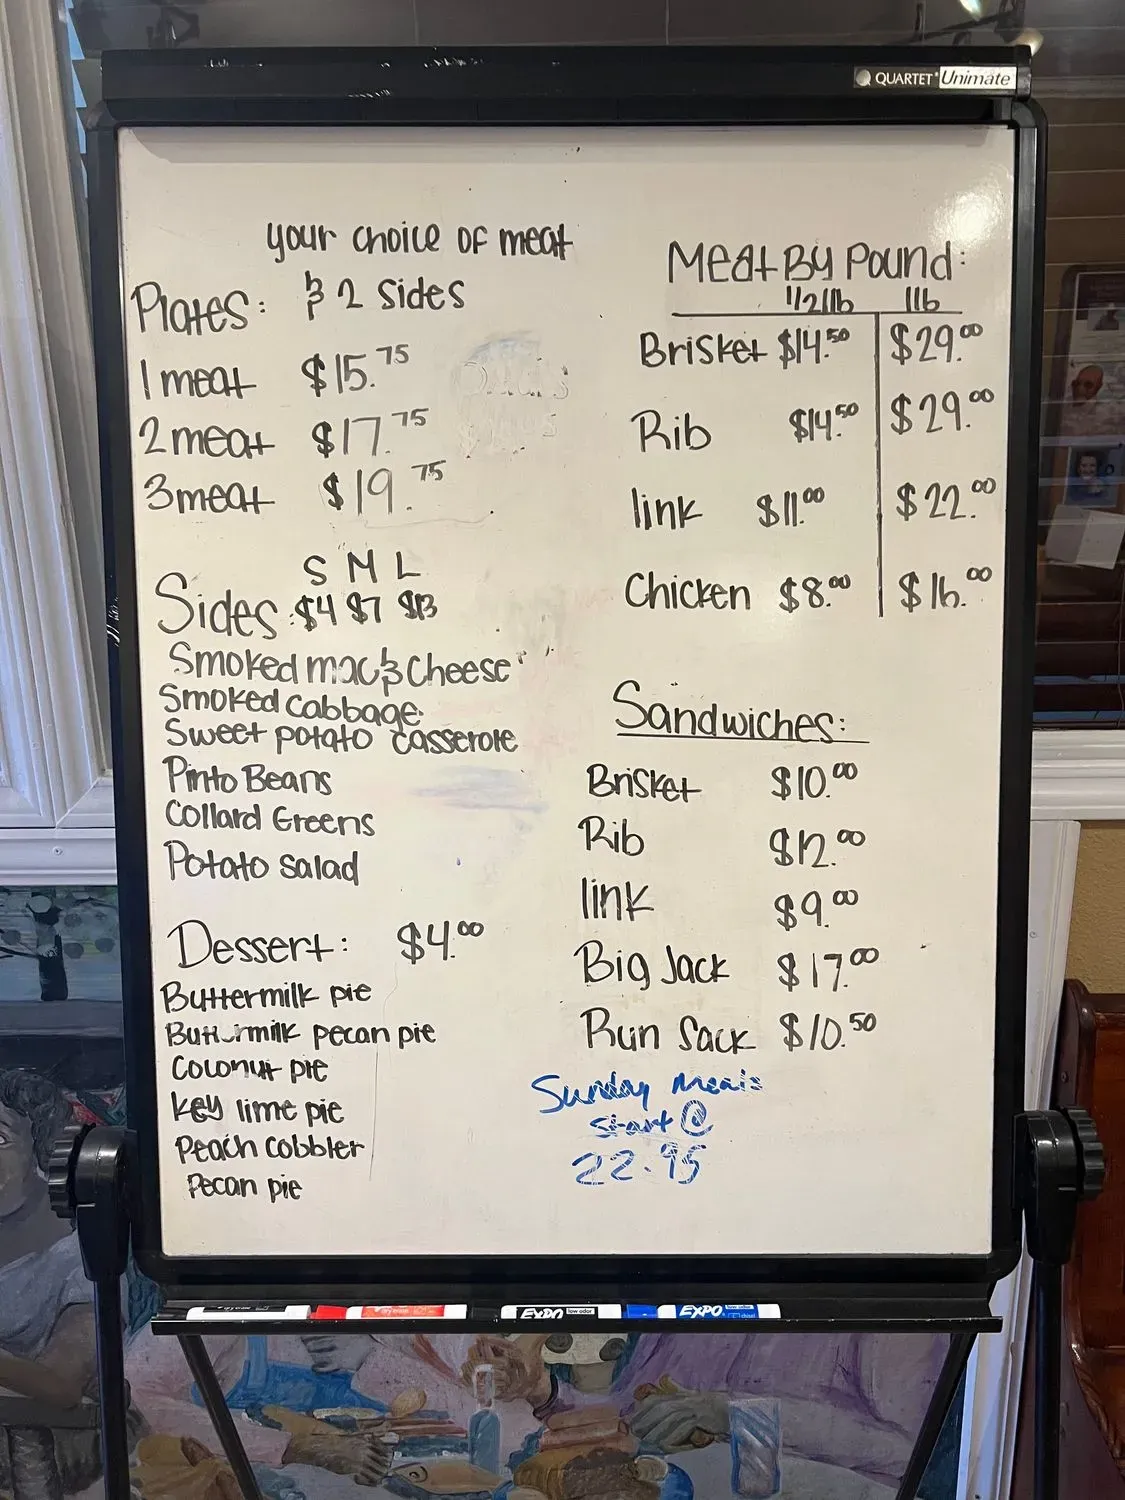 QUARTET Unimate
your choice of meat
Plates: & 2 sides
1 meat $15.75
2 meat $17.75
3 meat $19.75
S M L
Sides: $4 $7 $13
Smoked mac & Cheese
Smoked Cabbage
Sweet potato casserole
Pinto Beans
Collard Greens
Potato salad
Dessert: $4.00
Buttermilk pie
Buttermilk pecan pie
Coconut pie
Key lime pie
Peach Cobbler
Pecan pie
Meat By Pound:
1/2 lb 1 lb
Brisket $14.50 $29.00
Rib $14.50 $29.00
link $11.00 $22.00
Chicken $8.00 $16.00
Sandwiches:
Brisket $10.00
Rib $12.00
link $9.00
Big Jack $17.00
Run Sack $10.50
Sunday meals
start @
22.95
EXPO low odor
EXPO